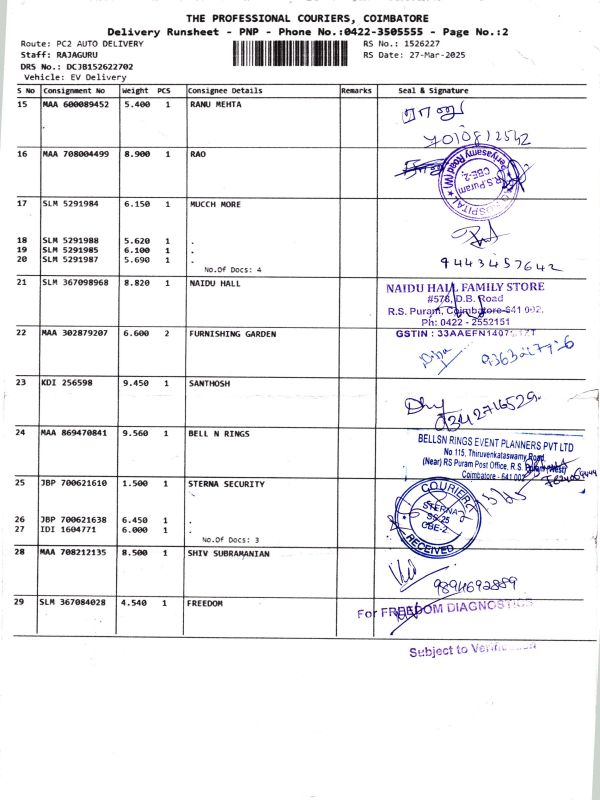 THE PROFESSIONAL COURIERS, COIMBATORE
Delivery Runsheet - PNP - Phone No.:0422-3505555 - Page No.:2
Route: PC2 AUTO DELIVERY RS No.: 1526227
Staff: RAJAGURU RS Date: 27-Mar-2025
DRS No.: DCJB152622702
Vehicle: EV Delivery
S No Consignment No Weight PCS Consignee Details Remarks Seal & Signature
15 MAA 600089452 5.400 1 RANU MEHTA
ராணு
7010812542
16 MAA 708004499 8.900 1 RAO
HOSPITAL
Periyasamy Road (W)
R.S Puram
CBE-2.
17 SLM 5291984 6.150 1 MUCCH MORE
18 SLM 5291988 5.620 1 .
19 SLM 5291985 6.100 1 .
20 SLM 5291987 5.690 1 .
9443457642
No.Of Docs: 4
21 SLM 367098968 8.820 1 NAIDU HALL
NAIDU HALL FAMILY STORE
#578, D.B. Road
R.S. Puram, Coimbatore-641 002.
Ph: 0422 - 2552151
GSTIN :
22 MAA 302879207 6.600 2 FURNISHING GARDEN
23 KDI 256598 9.450 1 SANTHOSH
9342716529
24 MAA 869470841 9.560 1 BELL N RINGS
BELLSN RINGS EVENT PLANNERS PVT LTD
No 115, Thiruvenkataswamy Road
(Near) RS Puram Post Office, R.S. Puram (West)
Coimbatore - 641 002
25 JBP 700621610 1.500 1 STERNA SECURITY
COURIER
STERNA
SS-25
CBE-2
RECEIVED
26 JBP 700621638 6.450 1 .
27 IDI 1604771 6.000 1 .
No.Of Docs: 3
28 MAA 708212135 8.500 1 SHIV SUBRAMANIAN
9894692889
29 SLM 367084028 4.540 1 FREEDOM
For FREEDOM DIAGNOSTICS
Subject to Verification